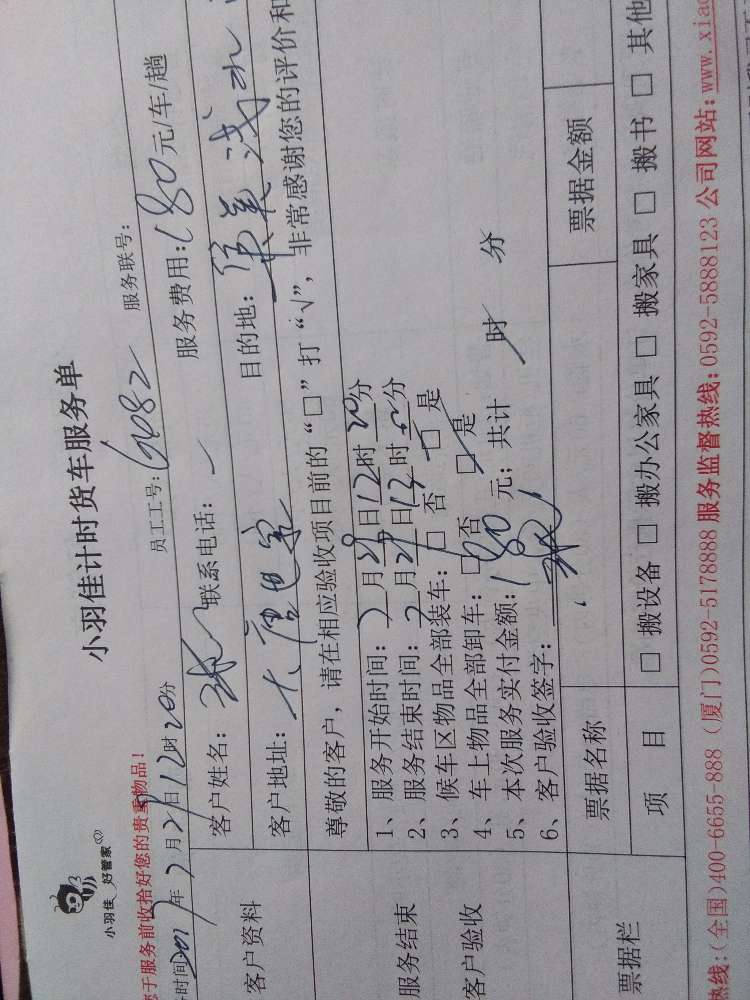 小羽佳 好管家
小羽佳计时货车服务单
于服务前收拾好您的贵重物品！
员工工号：6082 服务联号：
时间2017年7月29日12时20分
服务费用：180元/车/趟
客户资料
客户姓名： 联系电话：
客户地址：大唐世家 目的地：集美浅水
尊敬的客户，请在相应验收项目前的“□”打“√”，非常感谢您的评价和
服务结束
客户验收
1、服务开始时间：7月29日12时20分
2、服务结束时间：7月29日13时分
3、候车区物品全部装车：□否 □是
4、车上物品全部卸车：□否 □是
5、本次服务实付金额：180元；共计 时 分
6、客户验收签字：
票据栏
票据名称 票据金额
项 目 □搬设备 □搬办公家具 □搬家具 □搬书 □其他
热线：(全国)400-6655-888 (厦门)0592-5178888 服务监督热线：0592-5888123 公司网站：www.xiao